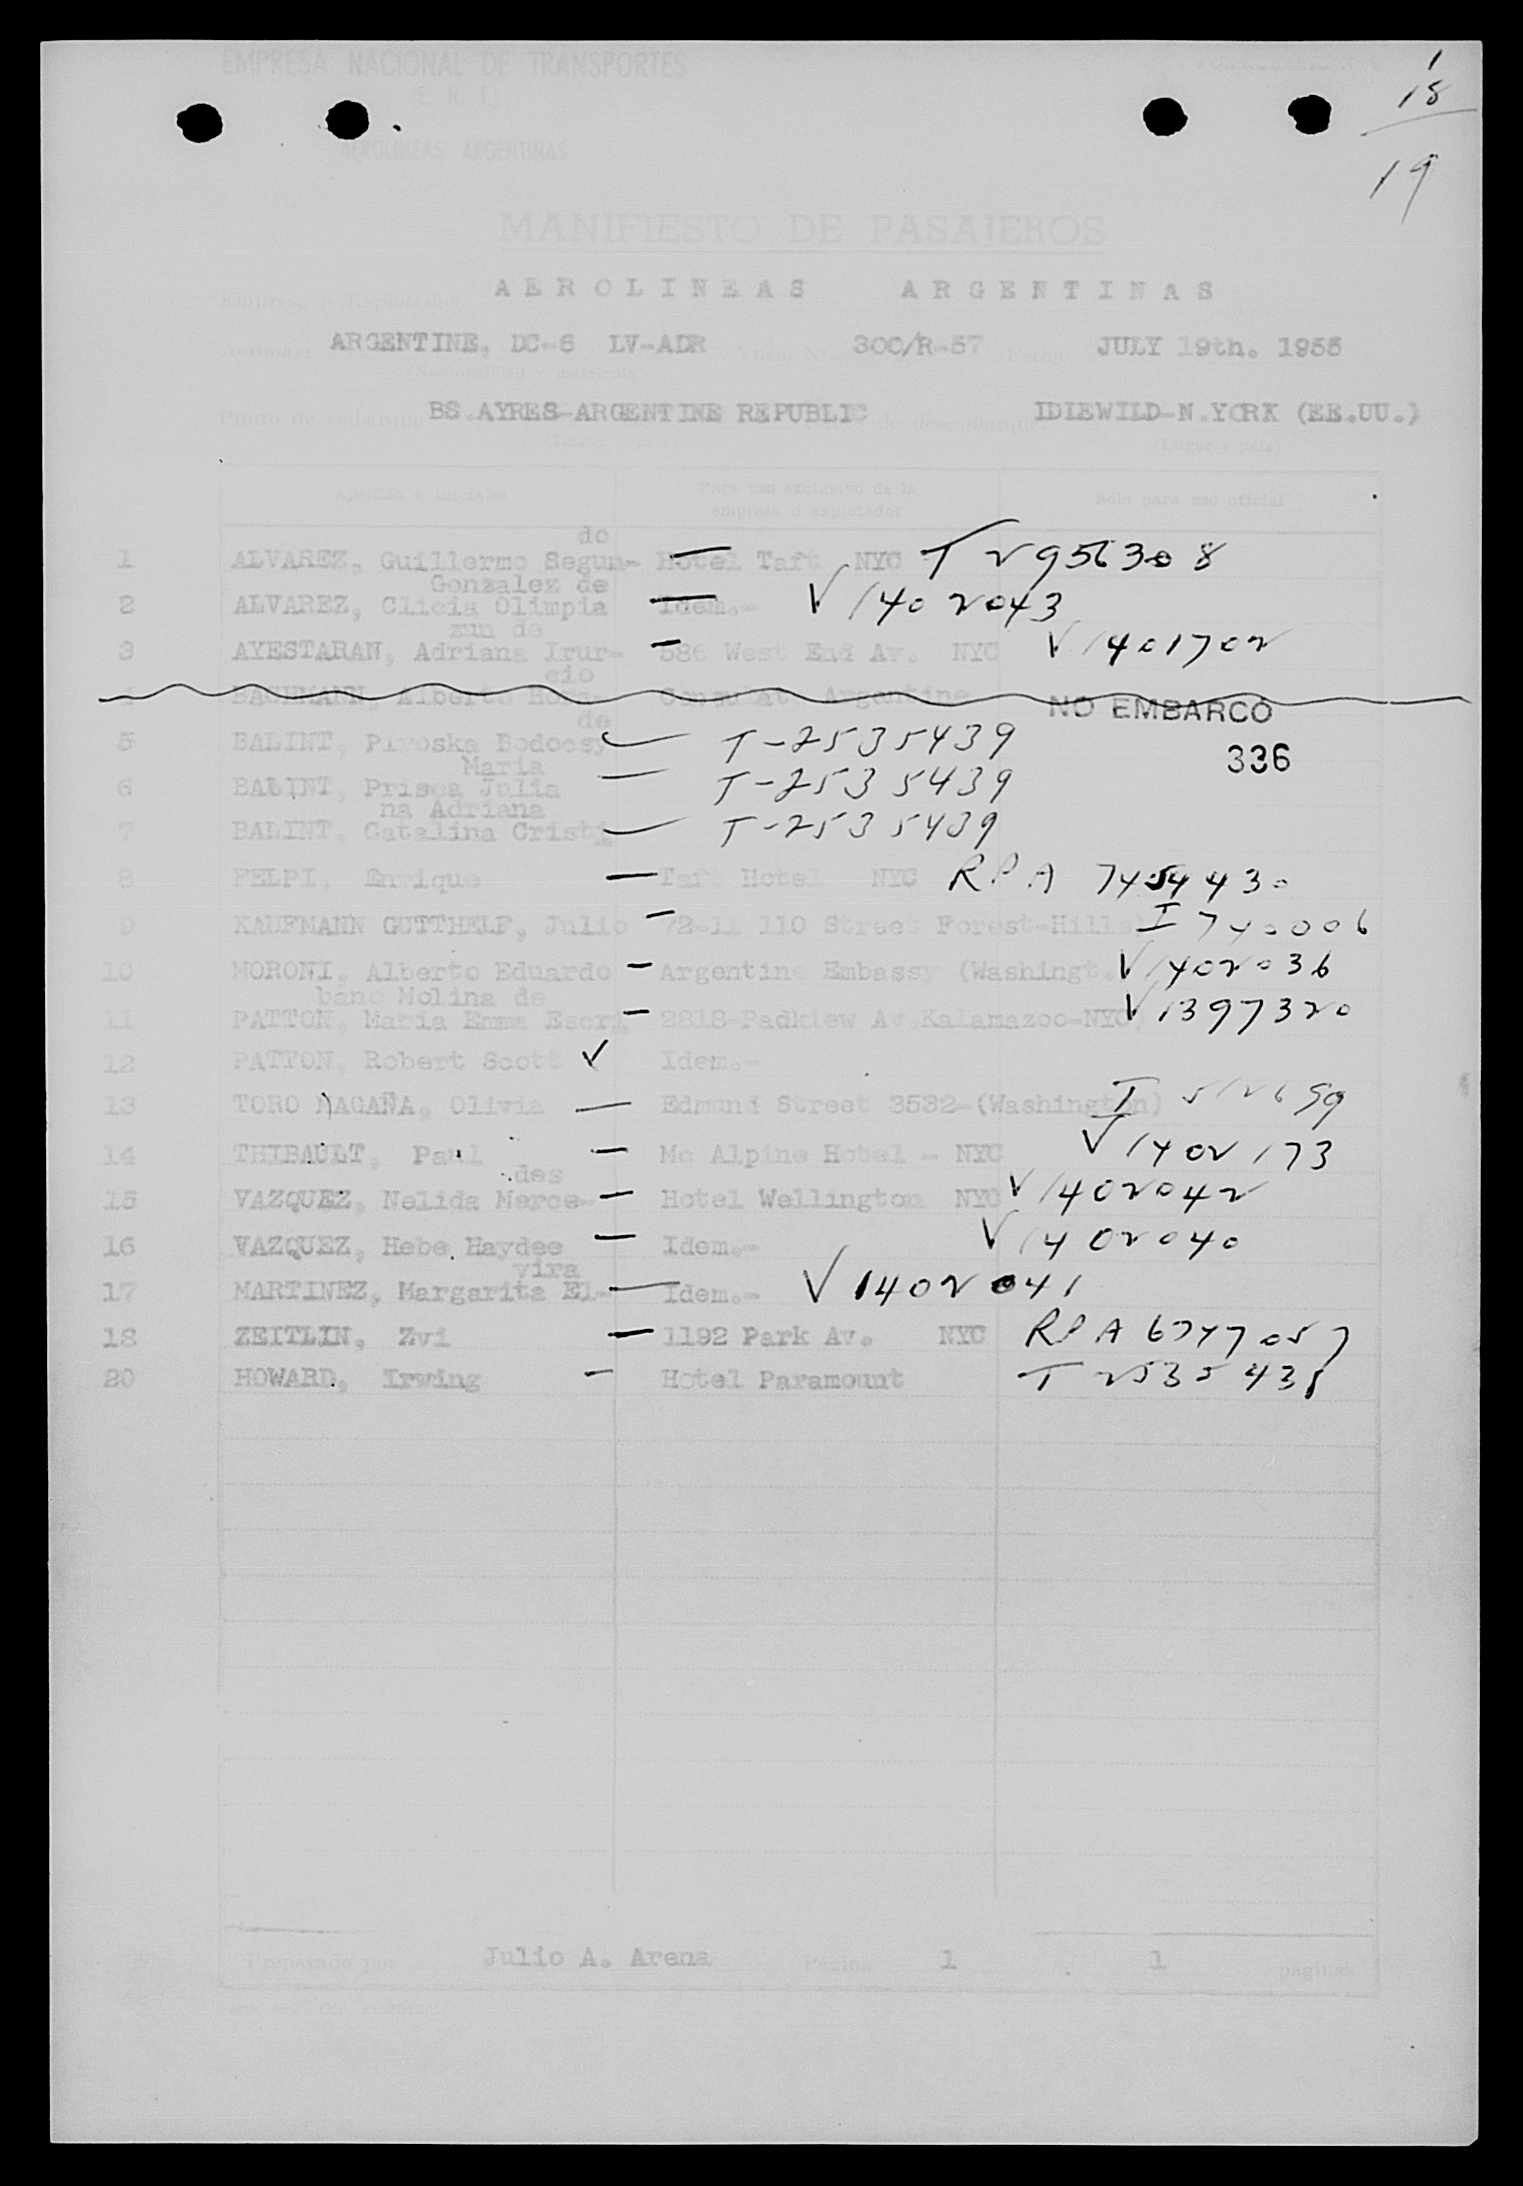 EMPRESA NACIONAL DE TRANSPORTES
(E. N. T.)
AEROLINEAS ARGENTINAS
1
18
19
MANIFIESTO DE PASAJEROS
AEROLINEAS ARGENTINAS
ARGENTINE, DC-6 LV-ADR 300/R-57 JULY 19th. 1955
Punto de embarque BS.AYRES-ARGENTINE REPUBLIC IDIEWILD-N.YORK (EE.UU.)
(Lugar y país)
Apellido e iniciales Para uso exclusivo de la empresa o explotador Sólo para uso oficial
do
1 ALVAREZ, Guillermo Segun- Hotel Taft NYC T 2956308
Gonzalez de
2 ALVAREZ, Clicia Olimpia Idem.- V 1402043
zun de
3 AYESTARAN, Adriana Irur- 586 West End Av. NYC V 1401702
cio
4 BACHMANN, Alberto Hora- Consulat Argentine NO EMBARCO
336
de
5 BALINT, Piroska Bodocsy T-2535439
Maria
6 BALINT, Prisca Julia T-2535439
na Adriana
7 BALINT, Catalina Cristi T-2535439
8 FELPI, Enrique Taft Hotel NYC RPA 7454430
9 KAUFMANN GUTTHELF, Julio 72-11 110 Street Forest-Hills) I 740006
10 MORONI, Alberto Eduardo Argentine Embassy (Washingt. V 1402036
bano Molina de
11 PATTON, Maria Emma Escri 2818-Padklew Av.Kalamazoo-NYC V 1397320
12 PATTON, Robert Scott Idem.-
13 TORO MAGAÑA, Olivia Edmund Street 3532-(Washington) T 512659
14 THIBAULT, Paul Mc Alpine Hotel - NYC V 1402173
des
15 VAZQUEZ, Nelida Merce- Hotel Wellington NYC V 1402042
16 VAZQUEZ, Hebe Haydee Idem.- V 1402040
vira
17 MARTINEZ, Margarita El- Idem.- V 1402041
18 ZEITLIN, Zvi 1192 Park Av. NYC RPA 6747057
20 HOWARD, Irwing Hotel Paramount T 2535438
Preparado por Julio A. Arena Página 1 1 páginas